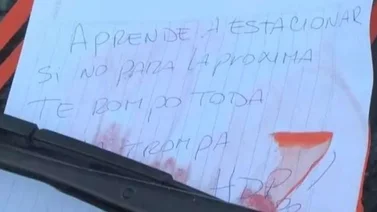 APRENDE A ESTACIONAR
SI NO PARA LA PROXIMA
TE ROMPO TODA
TROMPA
HDP